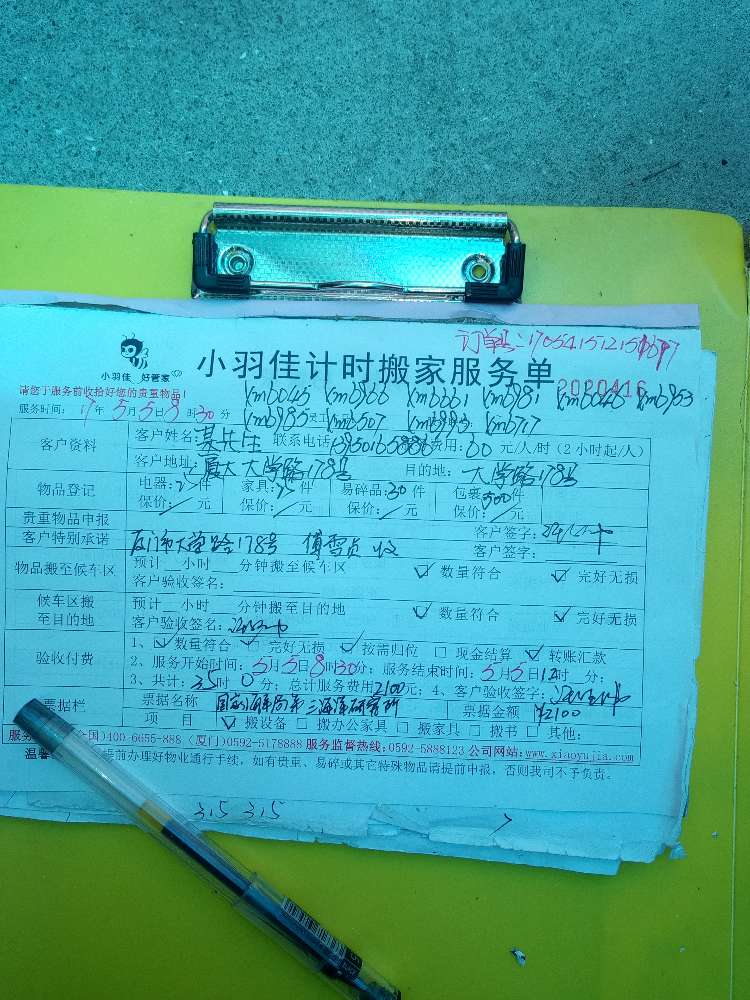 小羽佳 好管家
小羽佳计时搬家服务单
订单号:
2020416
请您于服务前收拾好您的贵重物品!
xmb045 xmb966 xmb661 xmb981 xmb646 xmb953
服务时间: 17年5月5日8时30分 xmb985 xmb507 xmb993 xmb717
客户资料
客户姓名: 先生 联系电话 费用: 60 元/人/时(2小时起/人)
客户地址: 厦大 大学路178号 目的地: 大学路178号
物品登记
电器: 件 家具: 件 易碎品: 30件 包裹: 300件
保价: / 元 保价: / 元 保价: / 元 保价: / 元
贵重物品申报 客户签字:
客户特别承诺 厦门市大学路178号 傅雪贞 收 客户签字:
物品搬至候车区 预计 小时 分钟搬至候车区 ☑ 数量符合 ☑ 完好无损
客户验收签名:
候车区搬至目的地 预计 小时 分钟搬至目的地 ☑ 数量符合 ☑ 完好无损
客户验收签名:
验收付费
1、☑ 数量符合 完好无损 ☑ 按需归位 □ 现金结算 ☑ 转账汇款
2、服务开始时间: 5月5日8时30分; 服务结束时间: 5月5日12时 分;
3、共计: 3.5时0分; 总计服务费用2100元; 4、客户验收签字:
票据栏
票据名称 国家海洋局第三海洋研究所 票据金额 ¥2100
项 目 ☑ 搬设备 □ 搬办公家具 □ 搬家具 □ 搬书 □ 其他:
服务 全国)400-6655-888 (厦门)0592-5178888 服务监督热线:0592-5888123 公司网站:www.xiaoyujia.com
温馨 提前办理好物业通行手续,如有贵重、易碎或其它特殊物品请提前申报,否则我司不予负责。
3.5 3.5